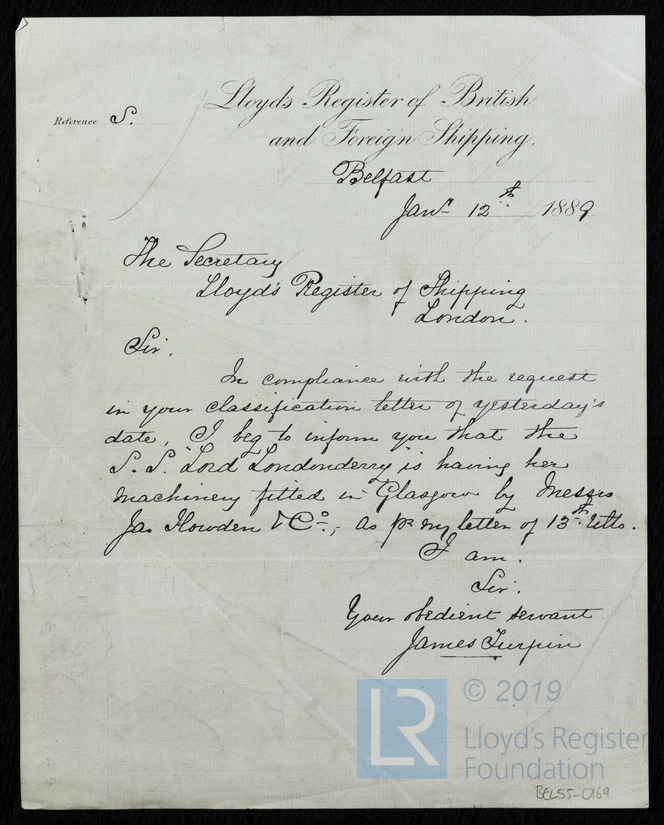 Lloyds Register of British
and Foreign Shipping.
Reference S.
Belfast
Jany 12th 1889
The Secretary
Lloyd's Register of Shipping
London.
Sir.
In compliance with the request
in your classification letter of yesterday's
date, I beg to inform you that the
S.S. "Lord Londonderry" is having her
machinery fitted in Glasgow by Messrs
Jas Howden & Co., as pr my letter of 13th Ulto.
I am.
Sir.
Your obedient servant
James Turpin
LR
© 2019
Lloyd's Register
Foundation
BEL55-0169